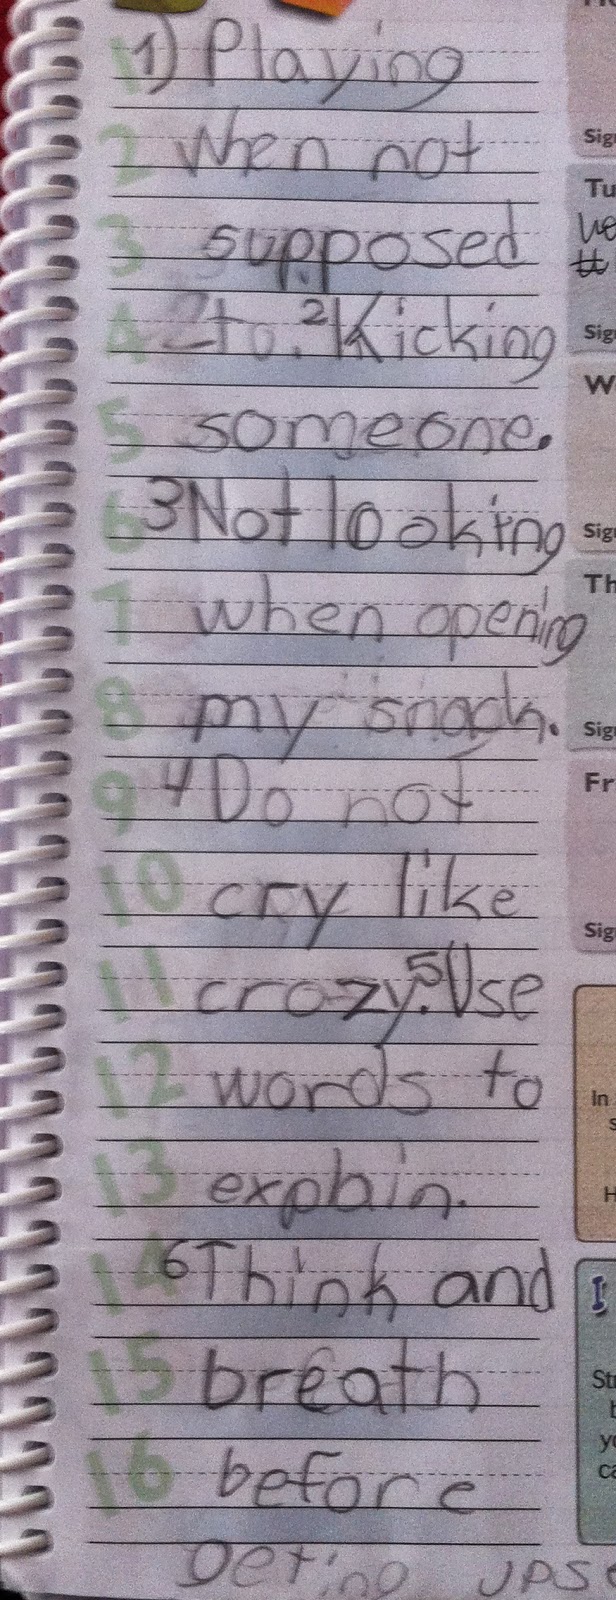 1 1) Playing
2 When not
3 supposed
4 to. 2 Kicking
5 someone.
6 3 Not looking
7 when opening
8 my snack.
9 4 Do not
10 cry like
11 crazy. 5 Use
12 words to
13 explain.
14 6 Think and
15 breath
16 before
Geting upse
Sig
Tu
Sig
W
Sig
Th
Sig
Fr
Sig
In
s
H
I
Stu
b
yo
ca